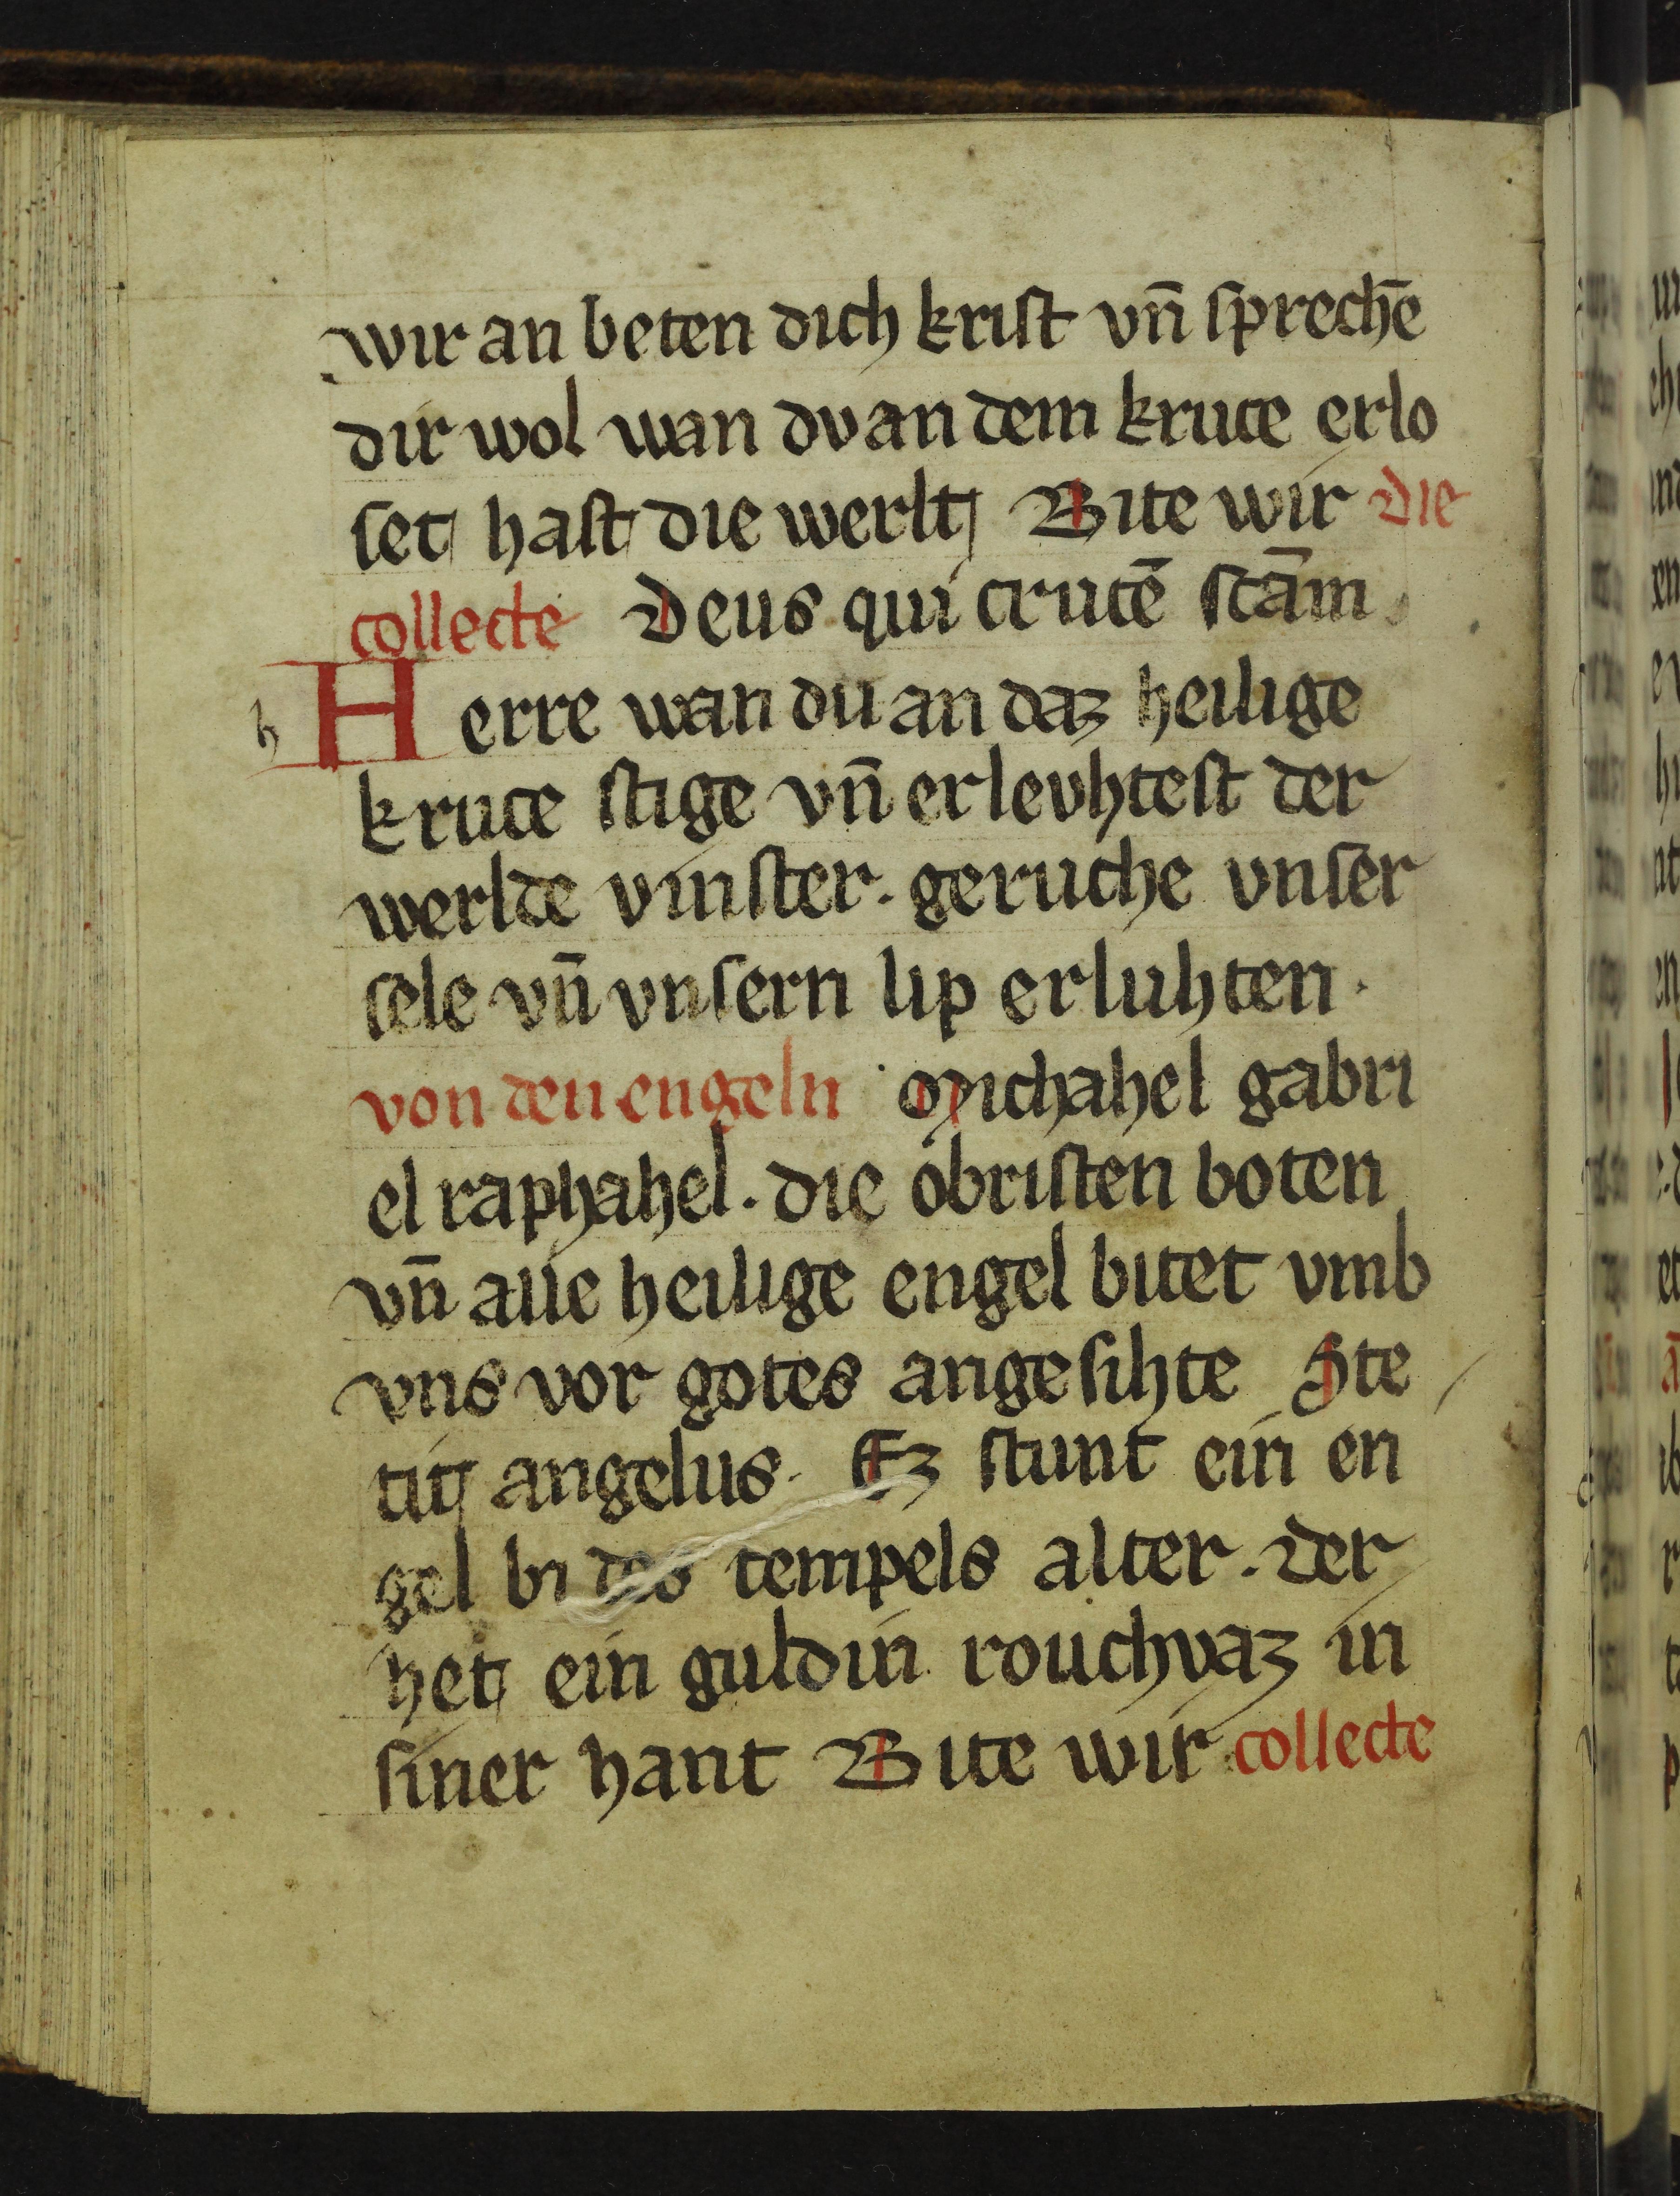 wir an beten dich kriſt vn̄ ſprechē
dir wol wan dv an dem kruce erlo
ſet haſt die werlt Bite wir die
collecte Deus qui crucē ſcām.
H erre wan du an daz heilige
kruce ſtige vn̄ erlevhteſt der
werlde vinſter. geruche vnſer
ſele vn̄ vnſern lip erluhten.
von den engeln Michahel gabri
el raphahel. die óbriſten boten
vn̄ alle heilige engel bitet vmb
vns vor gotes angeſihte Ste
tit angelus. Ez ſtunt ein en
gel bi des tempels alter. der
het ein guldin rouchvaz in
ſiner hant Bite wir collecte